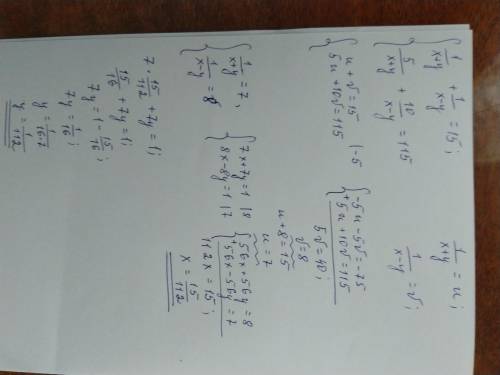 { 1/(x+y) + 1/(x-y) = 15;
{ 5/(x+y) + 10/(x-y) = 115
1/(x+y) = u;
1/(x-y) = v;
{ u + v = 15 |·-5
{ 5u + 10v = 115
{ -5u - 5v = -75
+ 5u + 10v = 115
5v = 40;
v = 8
u + 8 = 15
u = 7
{ 1/(x+y) = 7,
{ 1/(x-y) = 8
{ 7x + 7y = 1 |8
{ 8x - 8y = 1 |7
{ 56x + 56y = 8
+ 56x - 56y = 7
112x = 15;
x = 15/112
7 · 15/112 + 7y = 1;
15/16 + 7y = 1;
7y = 1 - 15/16;
7y = 1/16;
y = 1/(16·7)
y = 1/112